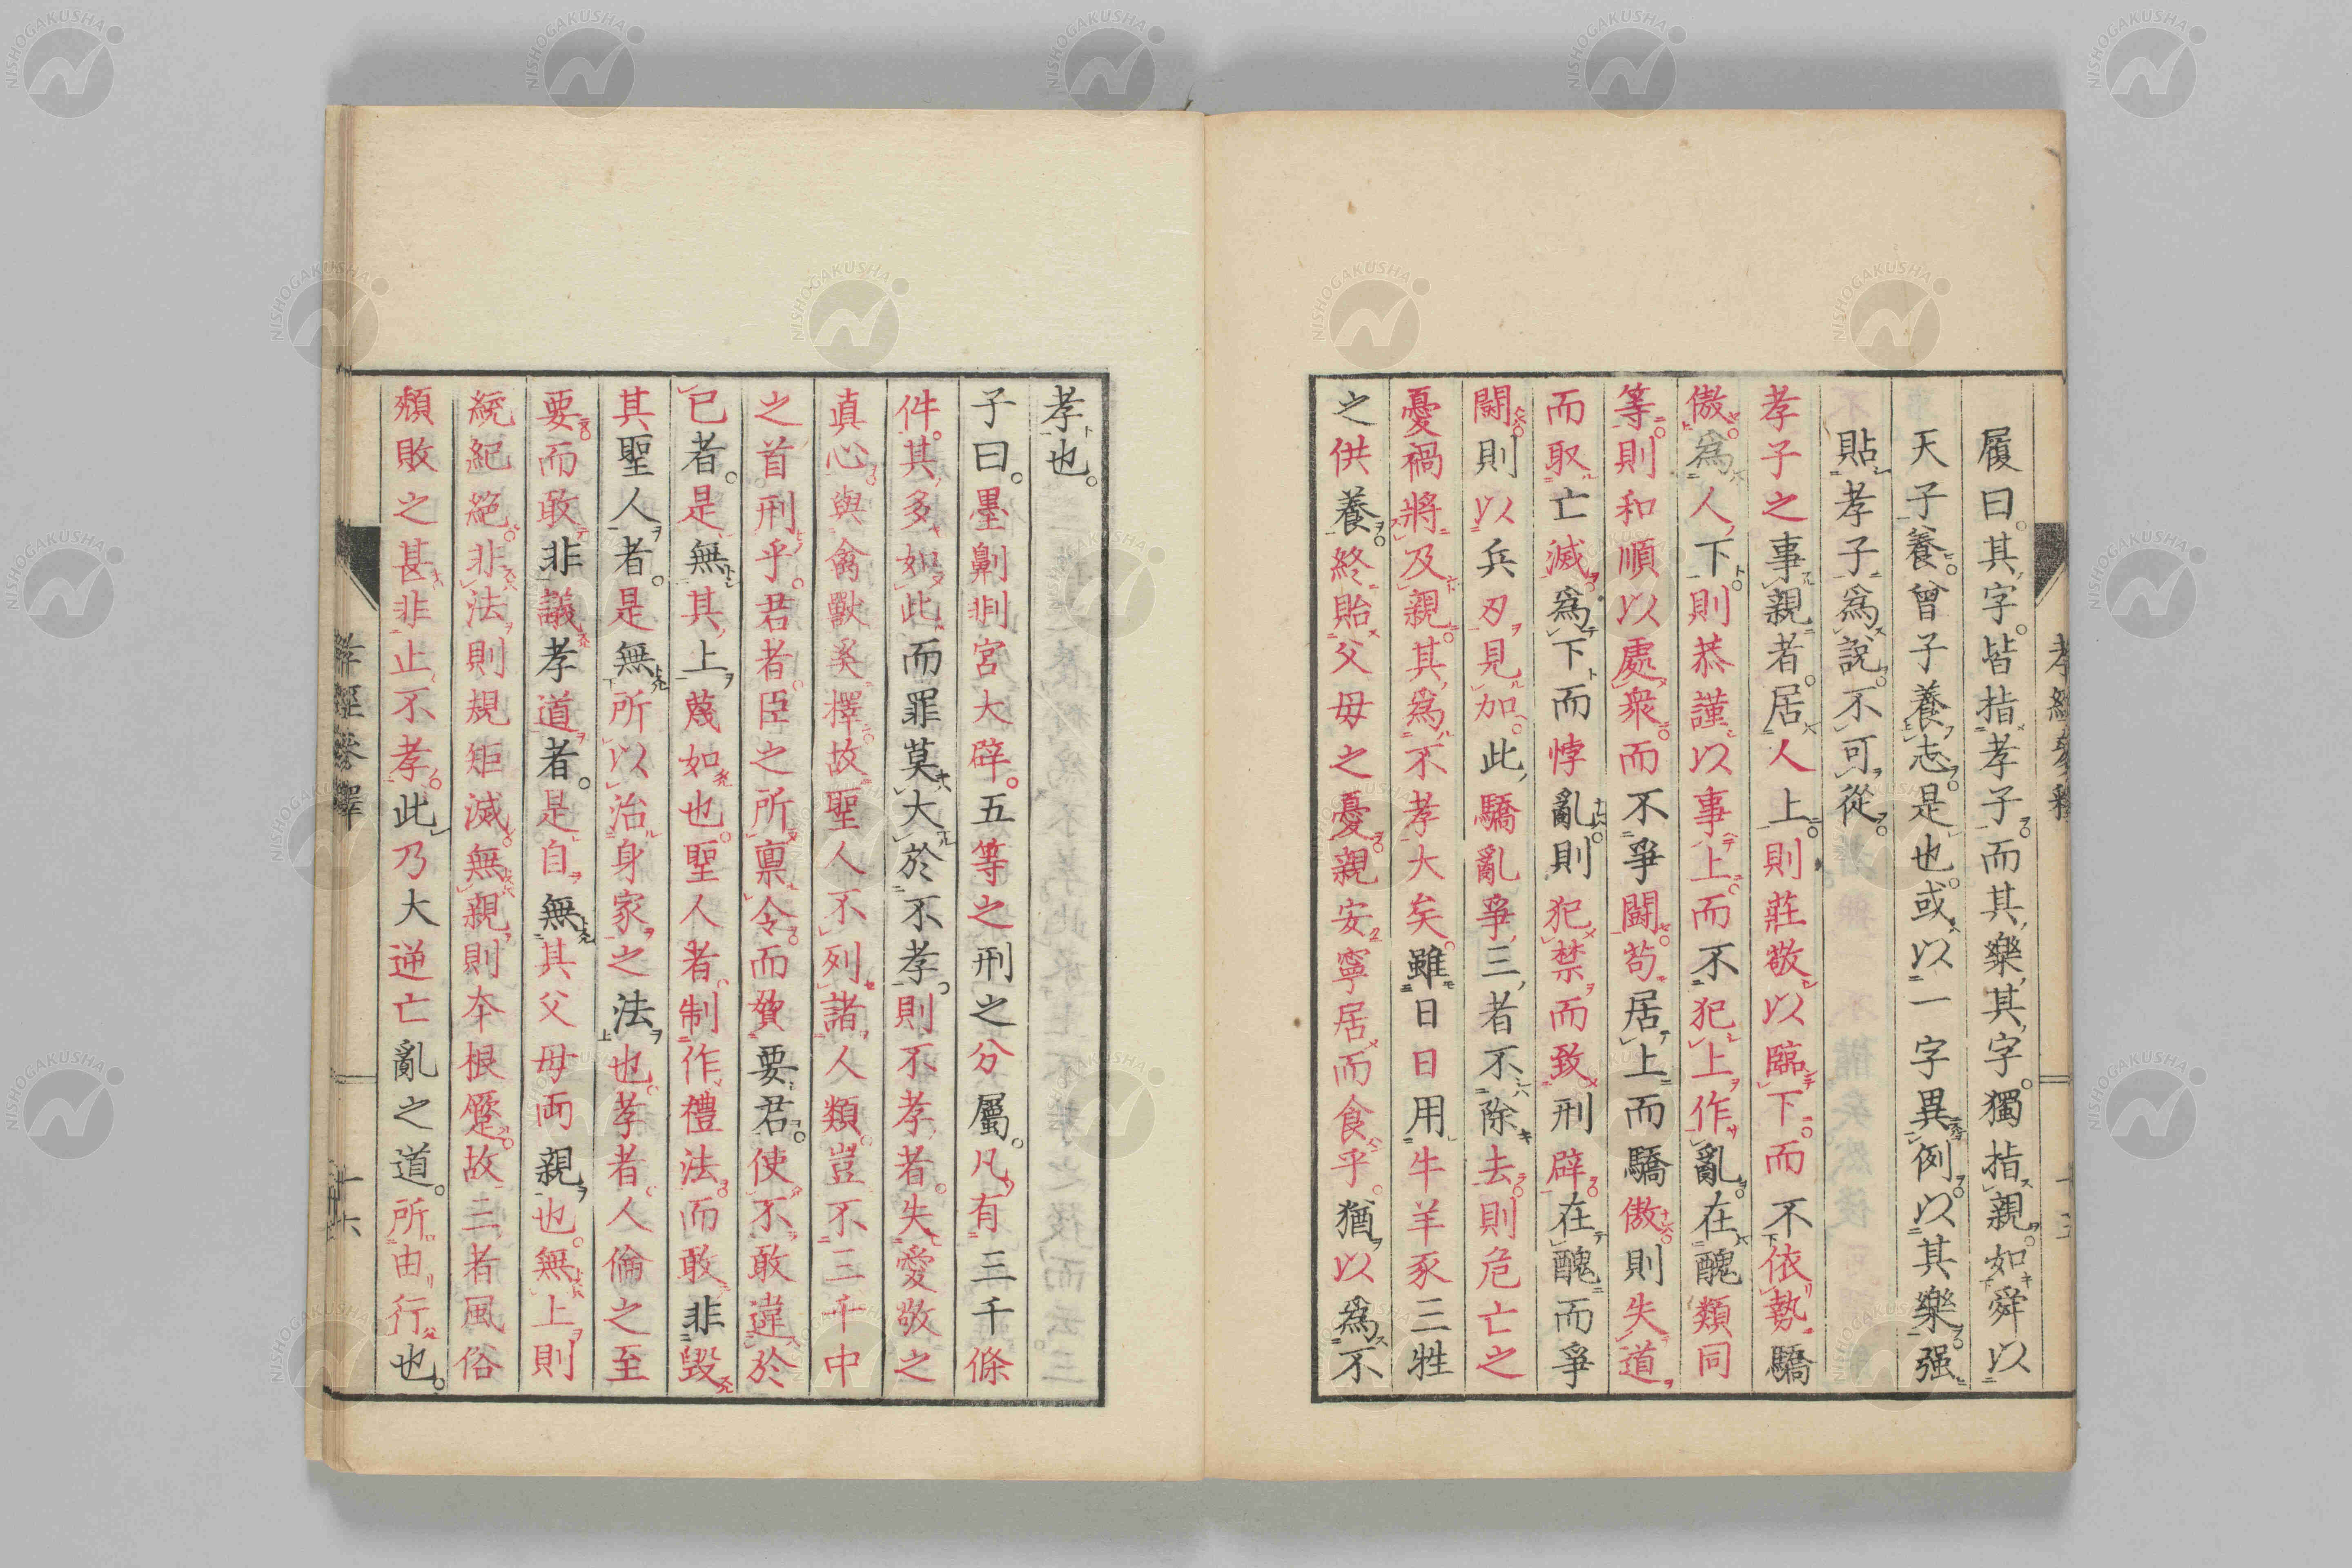 履曰其字皆指孝子而其樂其字獨指親如舜以
天子養曾子養志是也或以一字異例以其樂强
貼孝子爲說不可從
孝子之事親者居人上則莊敬以臨下而不依勢驕
傲爲人下則恭謹以事上而不犯上作亂在醜類同
等則和順以處衆而不爭鬪苟居上而驕傲則失道
而取亡滅爲下而悖亂則犯禁而致刑辟在醜而爭
鬪則以兵刃見加此驕亂爭三者不除去則危亡之
憂禍將及親其爲不孝大矣雖日日用牛羊豕三牲
之供養終貽父母之憂親安寧居而食乎猶以爲不
孝也
子曰墨劓剕宮大辟五等之刑之分屬凡有三千條
件其多如此而罪莫大於不孝則不孝者失愛敬之
真心與禽獸奚擇故聖人不列諸人類豈不三千中
之首刑乎君者臣之所禀令而敢要君使不敢違於
已者是無其上蔑如也聖人者制作禮法而敢非毀
其聖人者是無所以治身家之法也孝者人倫之至
要而敢非議孝道者是自無其父母両親也無上則
統紀絕非法則規矩滅無親則本根蹙故三者風俗
頹敗之甚非止不孝此乃大逆亡亂之道所由行也
孝經參釋
十六